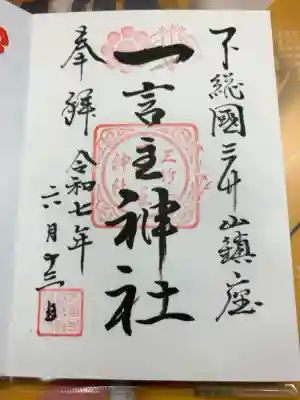 下総國三竹山鎮座
一言主神社
奉拝
令和七年
六月十三日